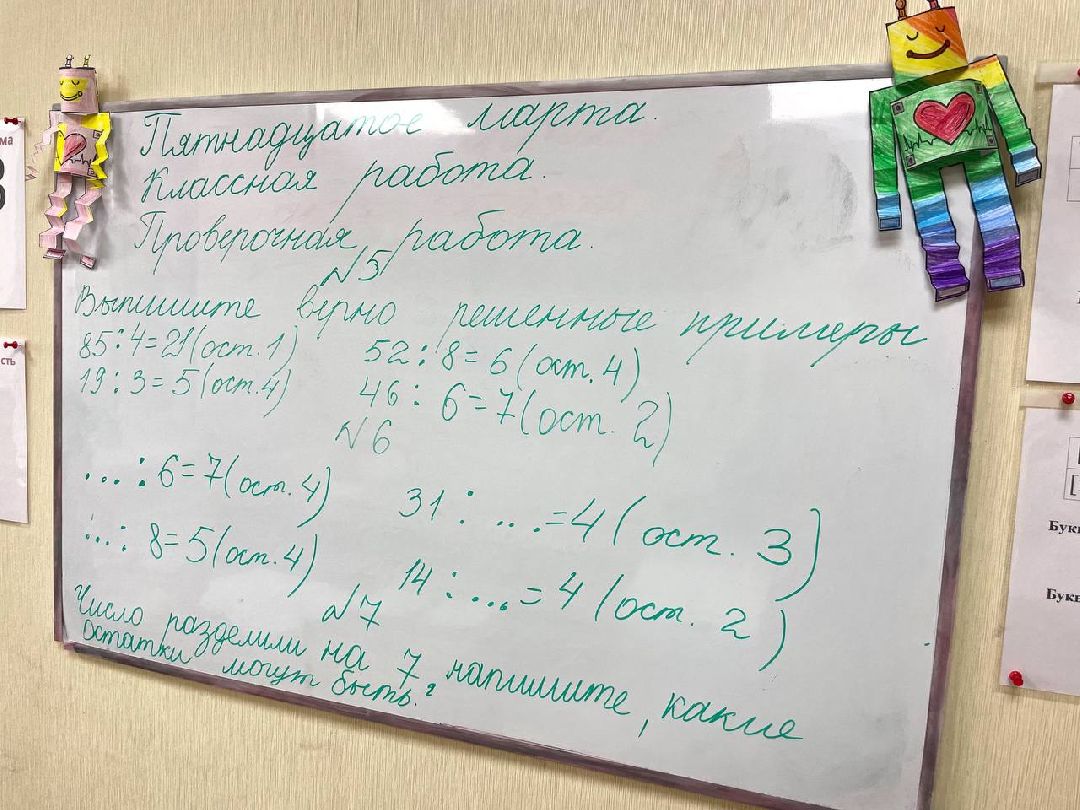 Пятнадцатое марта.
Классная работа.
Проверочная работа.
№5
Выпишите верно решенные примеры
85:4=21(ост.1) 52:8=6(ост.4)
19:3=5(ост.4) 46:6=7(ост.2)
№6
...:6=7(ост.4) 31:...=4(ост.3)
...:8=5(ост.4) 14:...=4(ост.2)
№7
Число разделили на 7, напишите, какие
остатки могут быть?
ма
сть
Букв
Букв